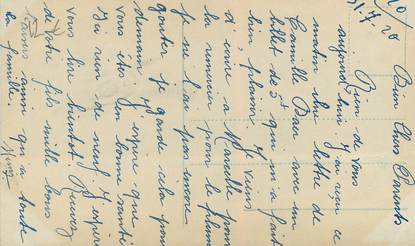 31.7.20
Bien Chers Parents
Rien de vous
aujourd'hui. J'ai reçu ce
matin une lettre de
Camille Bar avec un
billet de 5f qui m'a fait
bien plaisir. Je viens
d'écrire à Camille pour
la remercier pour la plume
je ne l'ai pas encore
je garde cela pour
demain. J'espère que
vous êtes en bonne santé
J'ai rien de neuf J'espère
vous lire bientôt. Recevez
de votre fils mille bons
baisers ainsi qu'à toute
la famille.